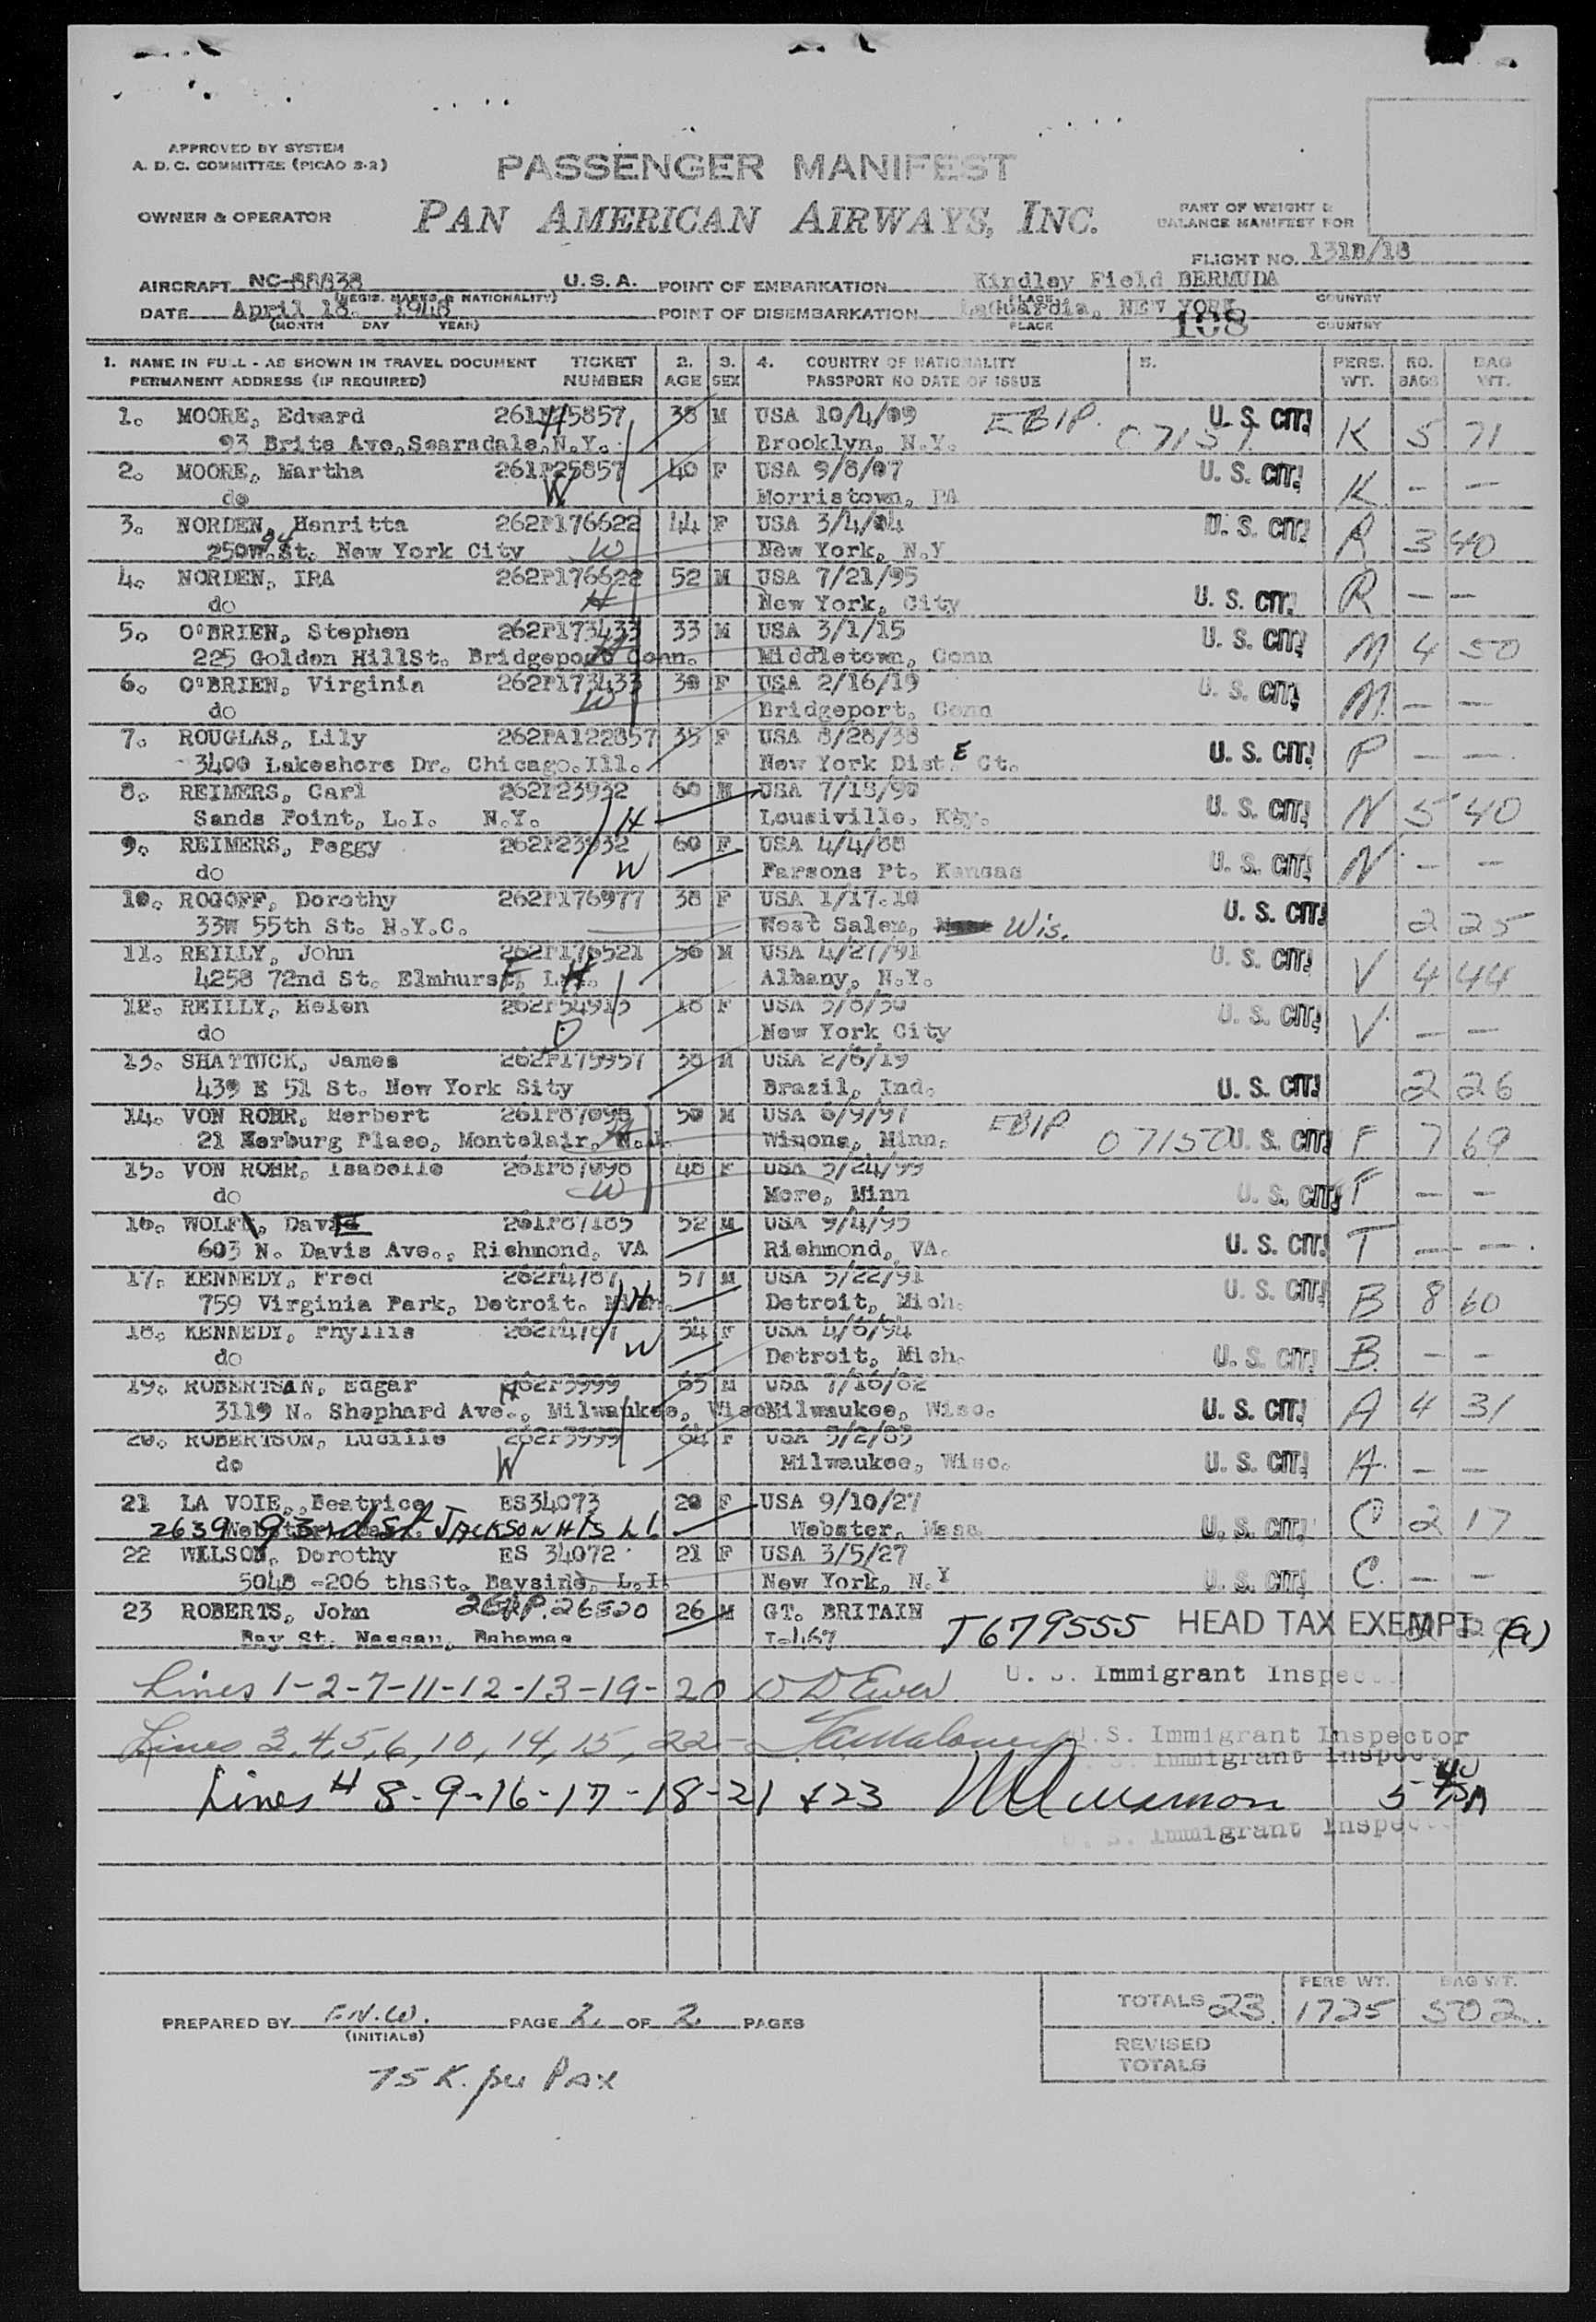 APPROVED BY SYSTEM
A. D. C. COMMITTEE (PICAO 3-2)
PASSENGER MANIFEST
OWNER & OPERATOR
PAN AMERICAN AIRWAYS, INC.
PART OF WEIGHT &
BALANCE MANIFEST FOR
FLIGHT NO. 131B/18
AIRCRAFT NC-88838 U.S.A. POINT OF EMBARKATION Kindley Field BERMUDA
(REGIS. MARKS & NATIONALITY) (PLACE) COUNTRY
DATE April 18, 1948 POINT OF DISEMBARKATION LaGuardia, NEW YORK
(MONTH DAY YEAR) PLACE 108 COUNTRY
1. NAME IN FULL - AS SHOWN IN TRAVEL DOCUMENT TICKET 2. 3. 4. COUNTRY OF NATIONALITY 5. PERS. NO. BAG
PERMANENT ADDRESS (IF REQUIRED) NUMBER AGE SEX PASSPORT NO DATE OF ISSUE WT. BAGS WT.
1. MOORE, Edward 38 M USA 10/4/09 EBIP. U. S. CIT!
93 Brite Ave,Scarsdale,N.Y. Brooklyn, N.Y. 07151 K 5 71
2. MOORE, Martha 261P25857 40 F USA 9/8/07 U. S. CIT!
do W Morristown, PA K - -
3. NORDEN, Henritta 262P176622 44 F USA 3/4/04 U. S. CIT!
250W 94 St. New York City W New York, N.Y R 3 40
4. NORDEN, IRA 262P176622 52 M USA 7/21/95
do H New York, City U. S. CIT! R - -
5. O'BRIEN, Stephen 262P173433 33 M USA 3/1/15 U. S. CIT!
225 Golden HillSt. Bridgeport Conn. Middletown, Conn M 4 50
6. O'BRIEN, Virginia 262P173433 30 F USA 2/16/19 U. S. CIT!
do W Bridgeport, Conn M - -
7. ROUGLAS, Lily 262PA122857 35 F USA 8/28/38
3400 Lakeshore Dr. Chicago.Ill. New York Dist. E Ct. U. S. CIT! P - -
8. REIMERS, Carl 262P23932 60 M USA 7/18/90
Sands Point, L.I. N.Y. H Lousiville. Key. U. S. CIT! N 5 40
9. REIMERS, Peggy 262P23932 60 F USA 4/4/88
do W Parsons Pt. Kansas U. S. CIT! N - -
10. ROGOFF, Dorothy 262P176977 38 F USA 1/17.10
33W 55th St. N.Y.C. West Salem, Wis. U. S. CIT! 2 25
11. REILLY, John 262P176521 56 M USA 4/27/91 U. S. CIT!
4258 72nd St. Elmhurst, L.I. Albany, N.Y. V 4 44
12. REILLY, Helen 262P54915 18 F USA 5/8/30 U. S. CIT!
do D New York City V - -
13. SHATTUCK, James 262P175957 38 M USA 2/6/19
439 E 51 St. New York Sity Brazil, Ind. U. S. CIT! 2 26
14. VON ROHR, Herbert 261P87098 50 M USA 6/9/97 EBIP
21 Kerburg Place, Montclair, N.J. Winona, Minn. 07150 U. S. CIT! F 7 69
15. VON ROHR, Isabelle 261P87098 48 F USA 5/24/99
do W More, Minn U. S. CIT! F - -
16. WOLFF, David 261P87185 52 M USA 9/4/95
603 N. Davis Ave., Richmond, VA Richmond, VA. U. S. CIT! T - -
17. KENNEDY, Fred 262P4787 57 M USA 5/22/91 U. S. CIT!
759 Virginia Park, Detroit. Mich. H Detroit, Mich. B 8 60
18. KENNEDY, Phyllis 262P4787 54 F USA 4/6/94
do W Detroit, Mich. U. S. CIT! B - -
19. ROBERTSAN, Edgar 262P3999 65 M USA 7/16/82
3119 N. Shephard Ave., Milwaukee, Wisc Milwaukee, Wisc. U. S. CIT! A 4 31
20. ROBERTSON, Lucille 262P3999 64 F USA 5/2/83
do W Milwaukee, Wisc. U. S. CIT! A - -
21 LA VOIE, Beatrice ES34073 20 F USA 9/10/27
2639 93rd St JACKSON HTS L I Webster, Mass U. S. CIT! C 2 17
22 WILSON, Dorothy ES 34072 21 F USA 3/5/27
5048 -206 thsSt. Baysine, L.I. New York, N.Y U. S. CIT! C - -
23 ROBERTS, John 26 M GT. BRITAIN
Bay St. Nassau, Bahamas I-467 J679555 HEAD TAX EXEMPT (a)
Lines 1-2-7-11-12-13-19-20 U. S. Immigrant Inspec
Lines 3,4,5,6,10,14,15,22- U.S. Immigrant Inspector
Immigrant Inspec
Lines # 8-9-16-17-18-21 +23
U. S. Immigrant Inspec
PREPARED BY F.N.W. PAGE 2. OF 2 PAGES
(INITIALS)
PERS WT. BAG WT.
TOTALS 23 1725 502
REVISED
TOTALS
75 K. per Pax